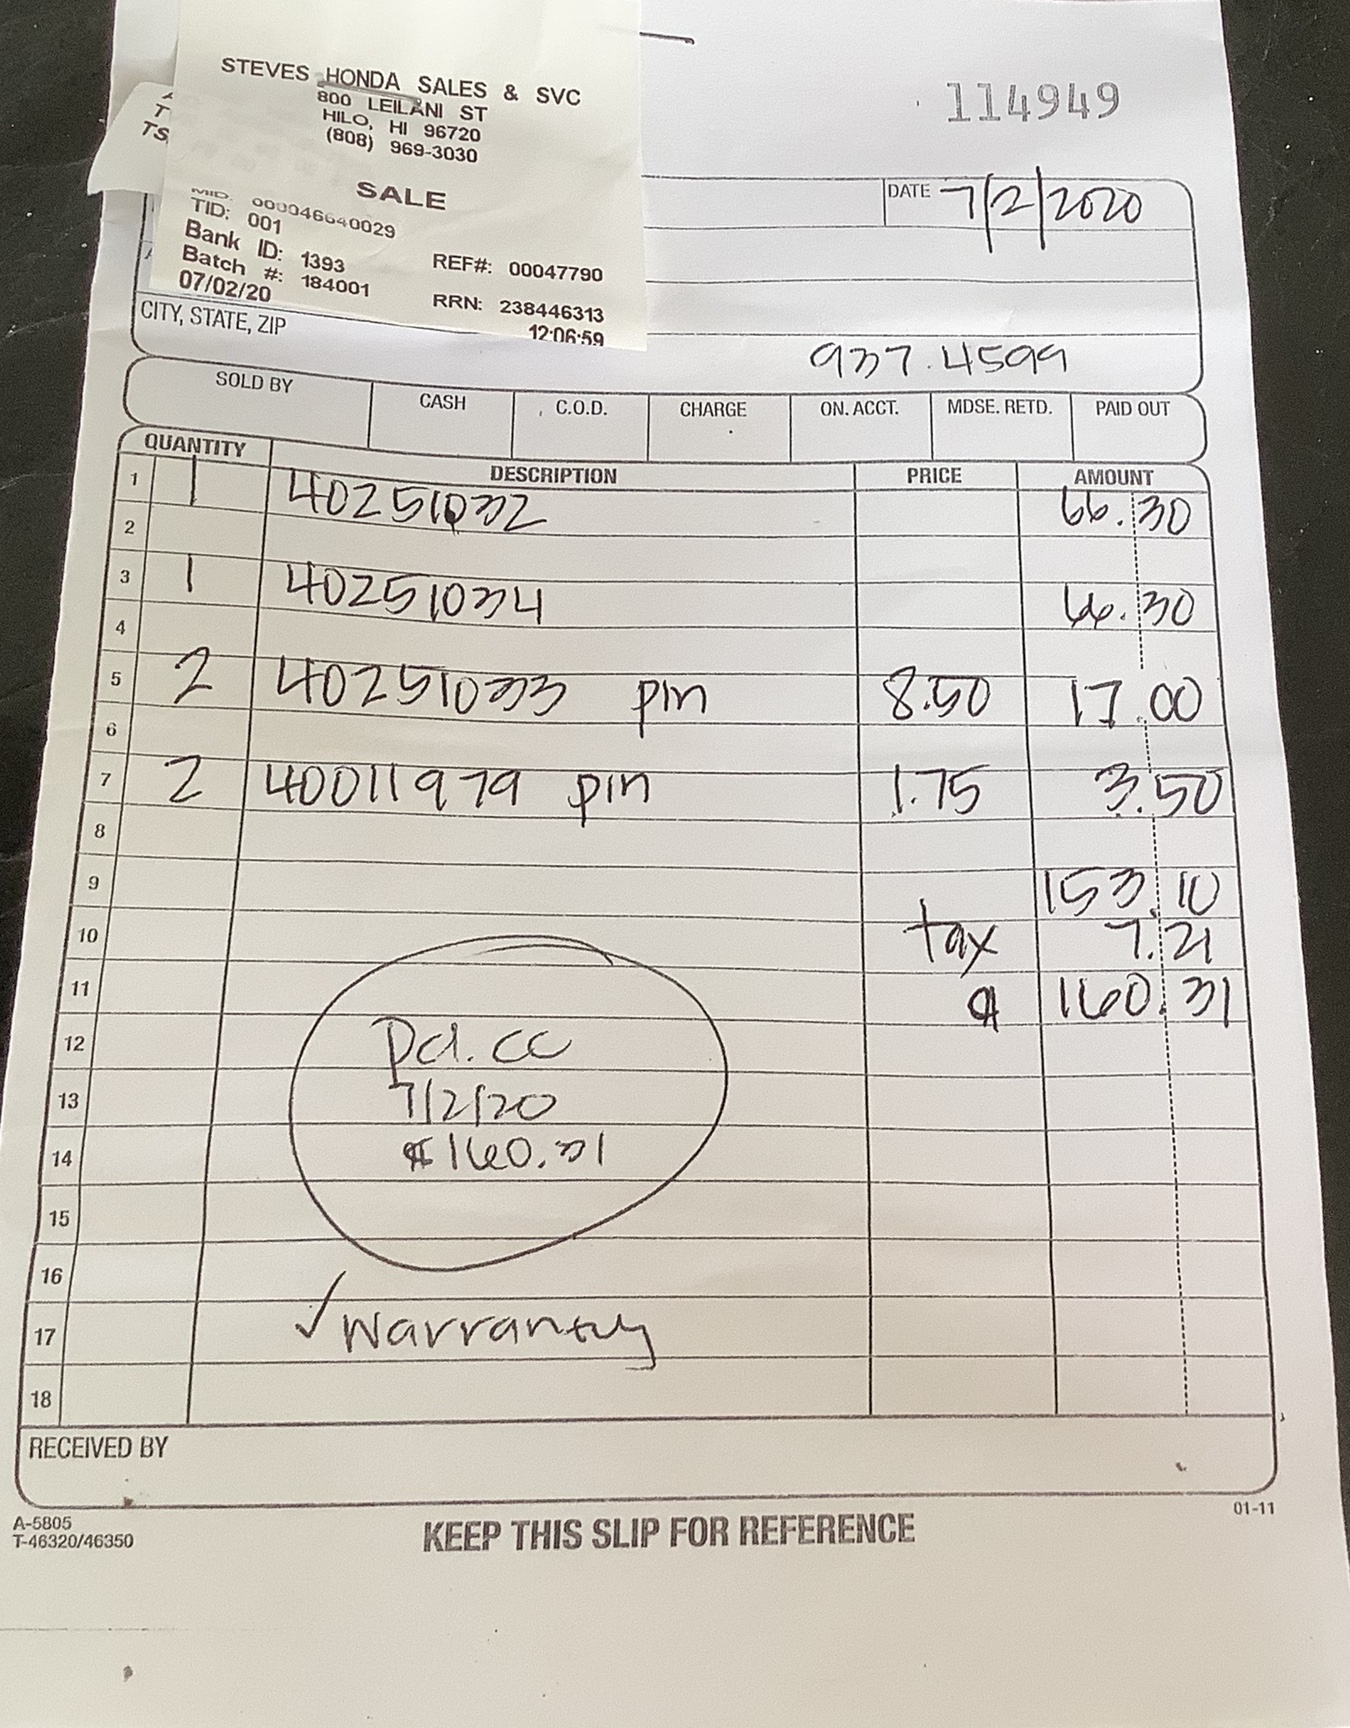 STEVES HONDA SALES & SVC
800 LEILANI ST
HILO, HI 96720
(808) 969-3030
SALE
MID: 000046640029
TID: 001
Bank ID: 1393 REF#: 00047790
Batch #: 184001
07/02/20 RRN: 238446313
12:06:59
TS
114949
DATE 7/2/2020
CITY, STATE, ZIP
937.4599
SOLD BY CASH C.O.D. CHARGE ON. ACCT. MDSE. RETD. PAID OUT
QUANTITY DESCRIPTION PRICE AMOUNT
1 1 40251032 66.30
2
3 1 40251034 66.30
4
5 2 40251033 pin 8.50 17.00
6
7 2 40011979 pin 1.75 3.50
8
9 153.10
10 tax 7.21
11 $ 160.31
12 pd. cc
13 7/2/20
14 $160.31
15
16
17 ✓ Warranty
18
RECEIVED BY
A-5805
T-46320/46350
KEEP THIS SLIP FOR REFERENCE
01-11